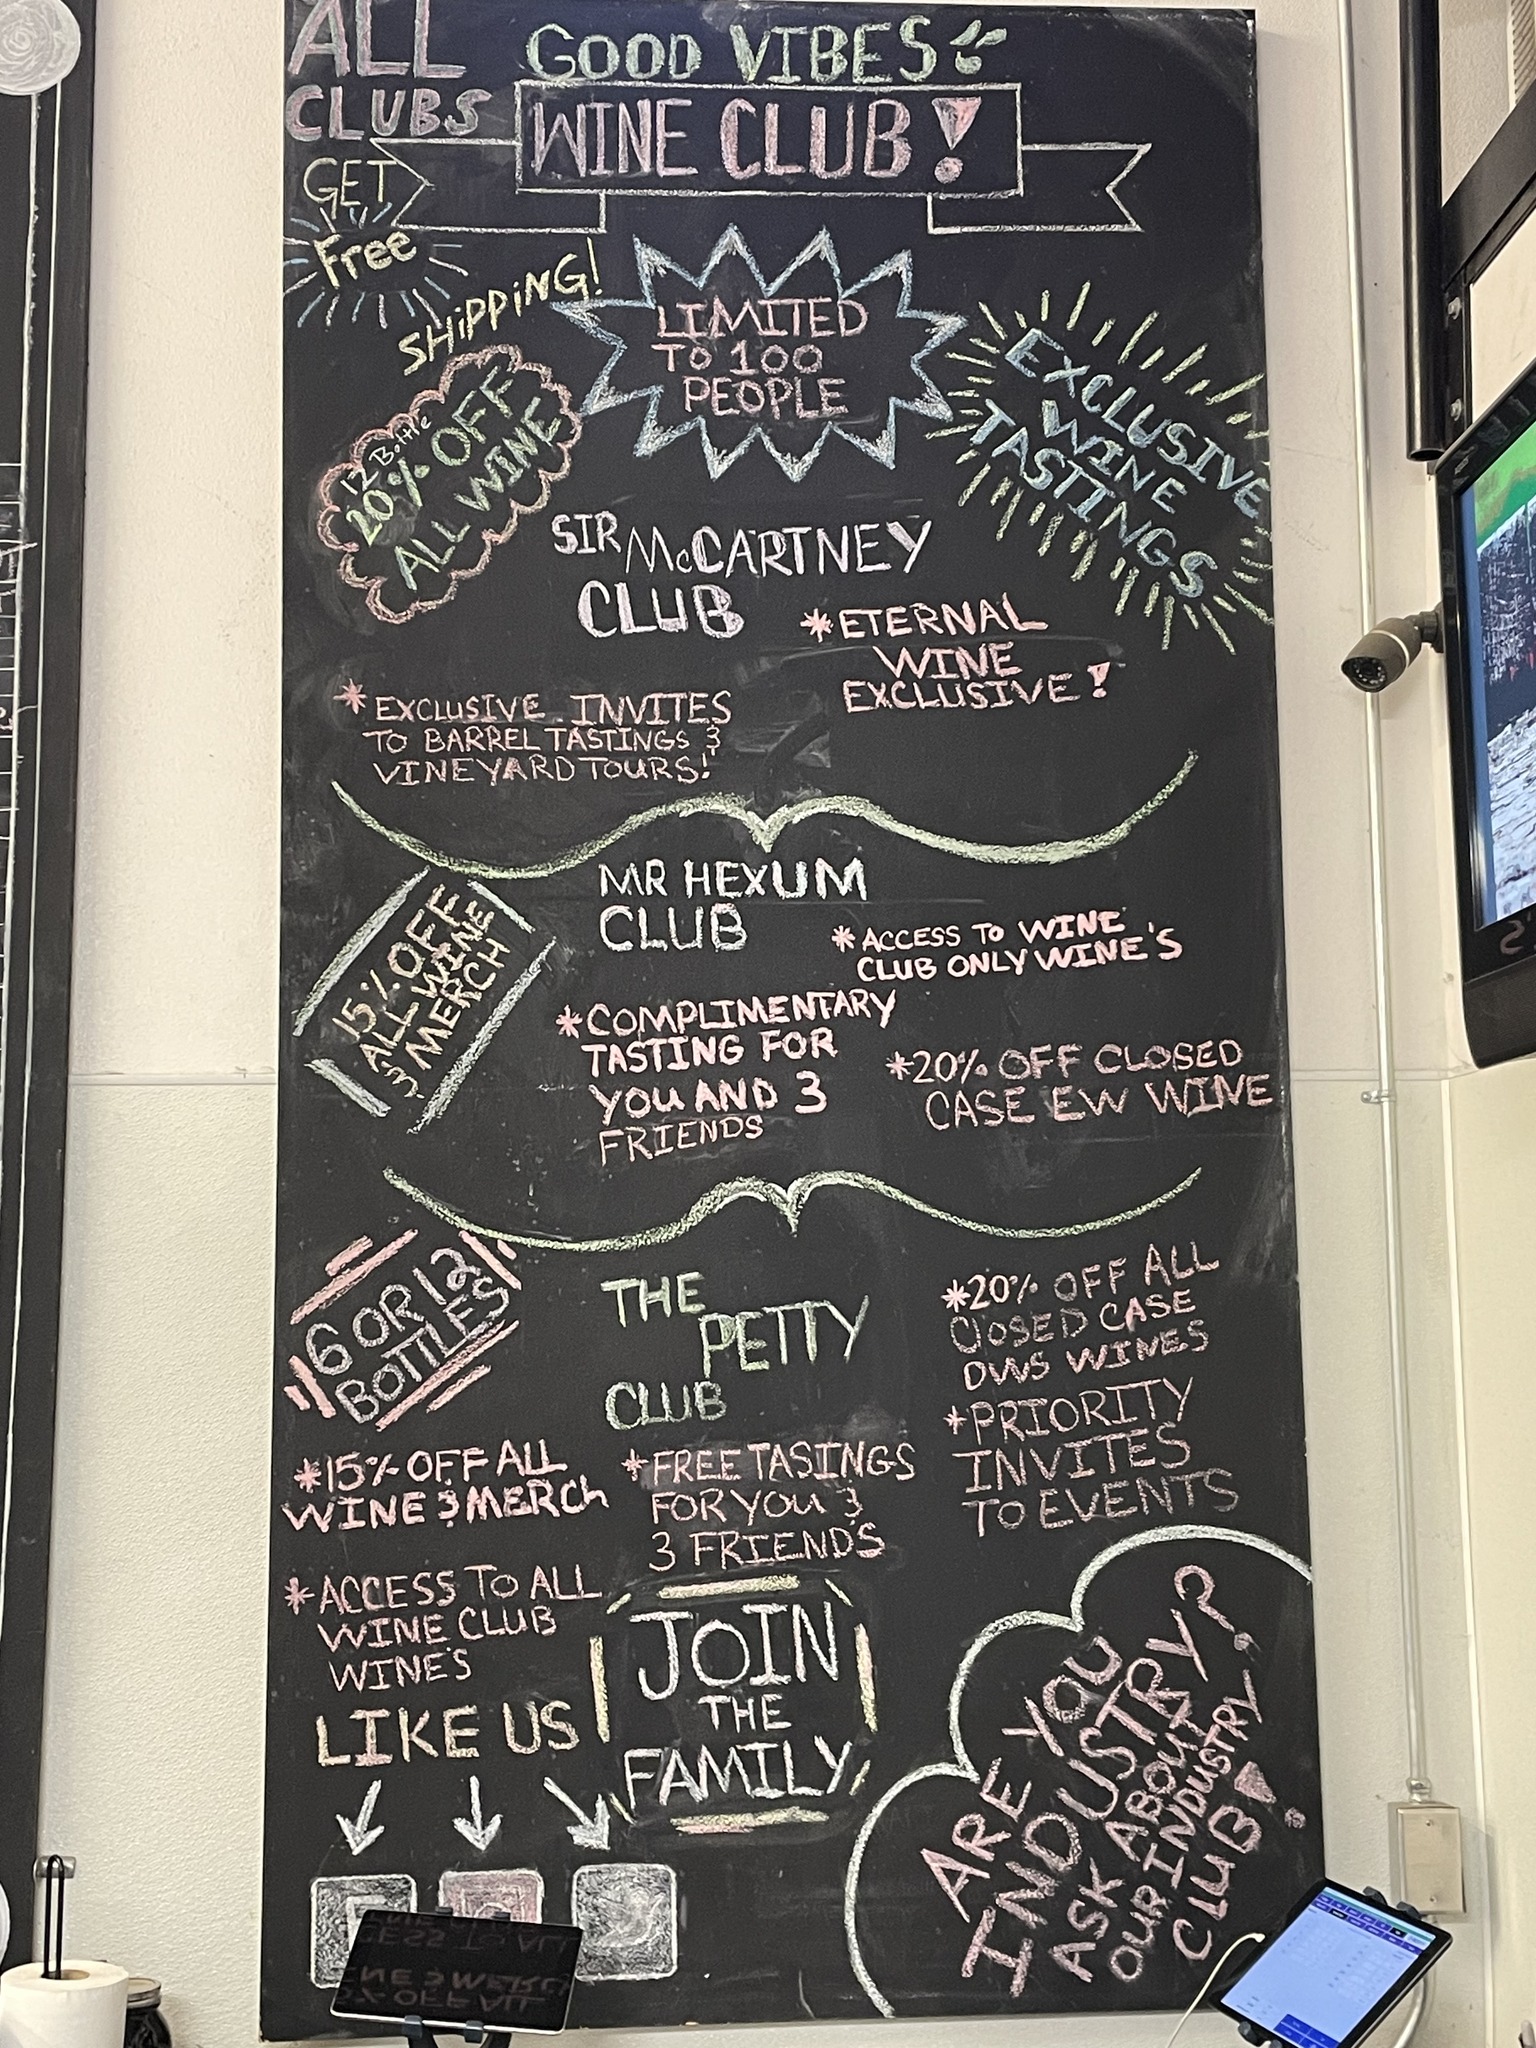 ALL
CLUBS
GET
Free
SHIPPING!
GOOD VIBES
WINE CLUB!
LIMITED
TO 100
PEOPLE
EXCLUSIVE
WINE
TASTINGS
12 Bottle
20% OFF
ALL WINE
SIR McCARTNEY
CLUB
*ETERNAL
WINE
EXCLUSIVE!
*EXCLUSIVE INVITES
TO BARREL TASTINGS &
VINEYARD TOURS!
MR HEXUM
CLUB
15% OFF
ALL WINE
& MERCH
*ACCESS TO WINE
CLUB ONLY WINE'S
*COMPLIMENTARY
TASTING FOR
YOU AND 3
FRIENDS
*20% OFF CLOSED
CASE EW WINE
6 OR 12
BOTTLES
THE
PETTY
CLUB
*20% OFF ALL
ClOSED CASE
DWS WINES
*PRIORITY
INVITES
TO EVENTS
*15% OFF ALL
WINE & MERCh
*FREE TASINGS
FOR YOU &
3 FRIENDS
*ACCESS TO ALL
WINE CLUB
WINES
LIKE US
JOIN
THE
FAMILY
ARE YOU
INDUSTRY?
ASK ABOUT
OUR INDUSTRY
CLUB!